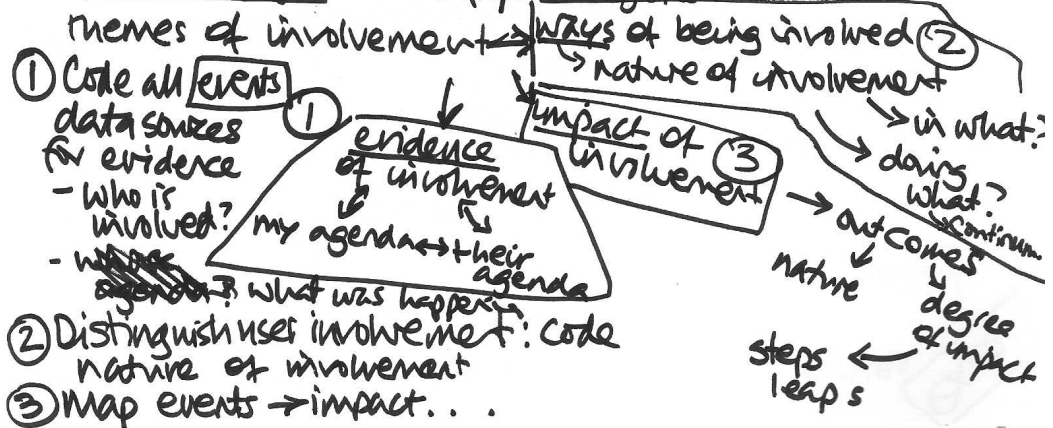 themes of involvement ↔ ways of being involved ②
nature of involvement
in what?
doing
what?
continuum
① Code all events
data sources
for evidence
- who is
involved?
- what was happen
①
evidence
of involvement
my agenda ↔ their
agenda
impact of
involvement
③
→ outcomes
nature
degree
of impact
steps
leaps
② Distinguish user involvement: code
nature of involvement
③ Map events → impact...